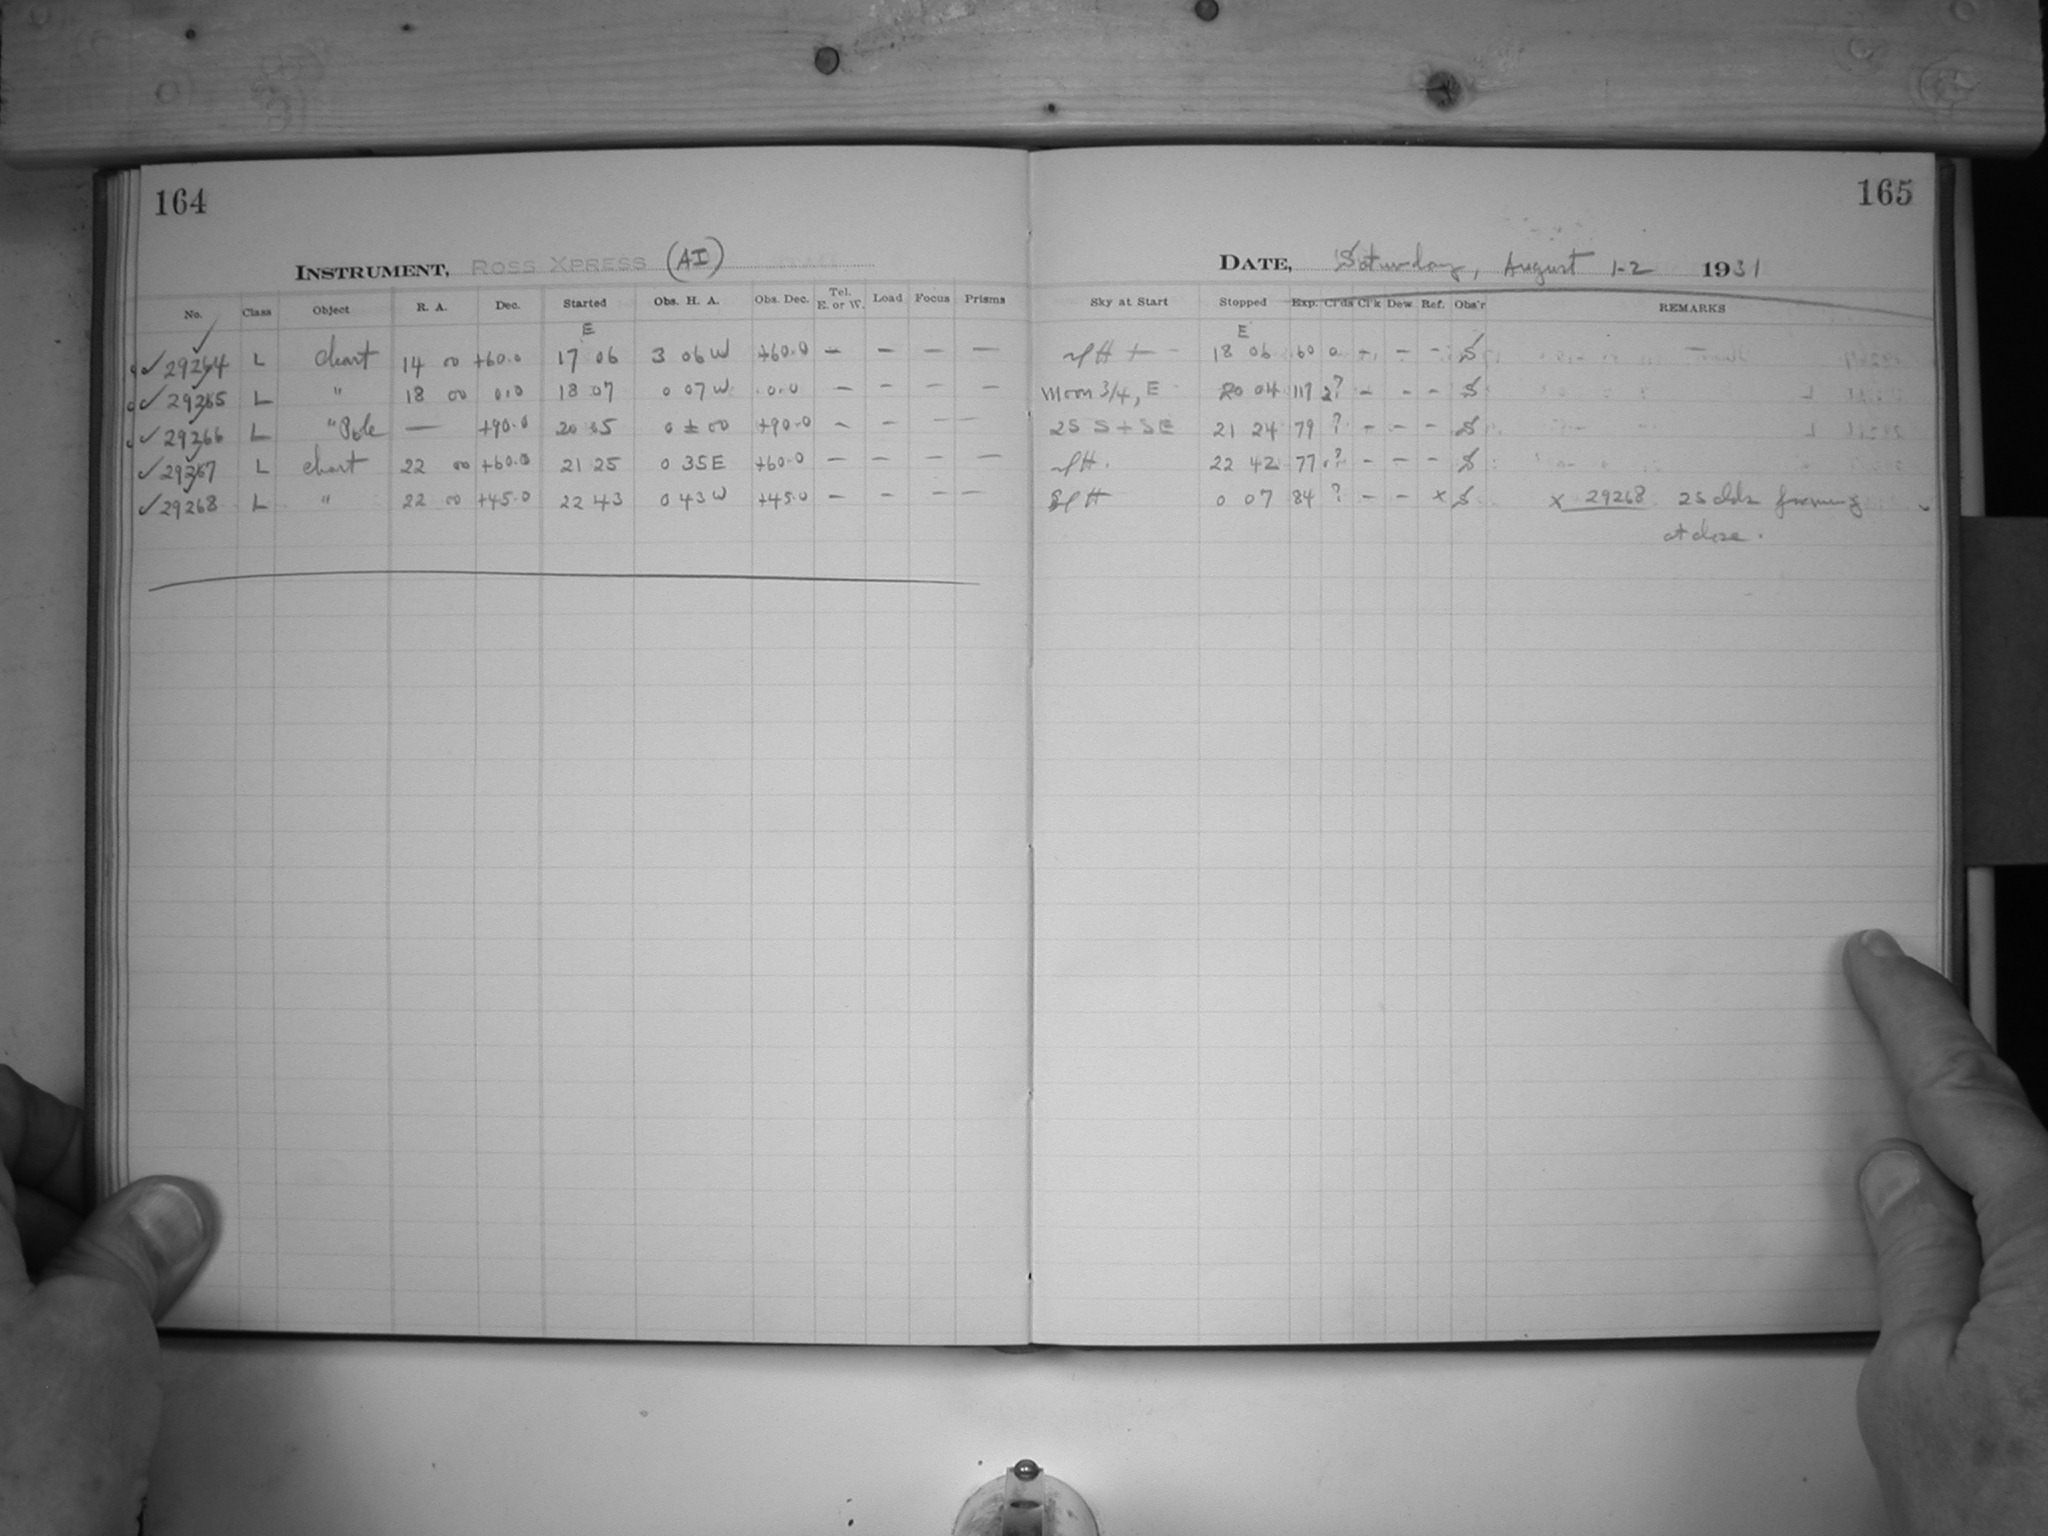 164
INSTRUMENT, ROSS XPRESS (AI)
No. Class Object R. A. Dec. Started Obs. H. A. Obs. Dec. Tel. E. or W. Load Focus Prisms
E
✓ 29264 L chart 14 00 +60.0 17 06 3 06 W +60.0 — — — —
✓ 29265 L " 18 00 0.0 18 07 0 07 W 0.0 — — — —
✓ 29266 L " Pole — +90.0 20 05 0 ± 00 +90.0 — — — —
✓ 29267 L chart 22 00 +60.0 21 25 0 35 E +60.0 — — — —
✓ 29268 L " 22 00 +45.0 22 43 0 43 W +45.0 — — — —
165
DATE, Saturday, August 1-2 1931
Sky at Start Stopped Exp. Cl'ds Cl'k Dew Ref. Obs'r REMARKS
E
18 06 60 0 — — —
Moon 3/4, E 20 04 117 2? — — —
2S S + SE 21 24 79 ? — — —
22 42 77 ? — — —
0 07 84 ? — — x x 29268 2S clds forming
at close.